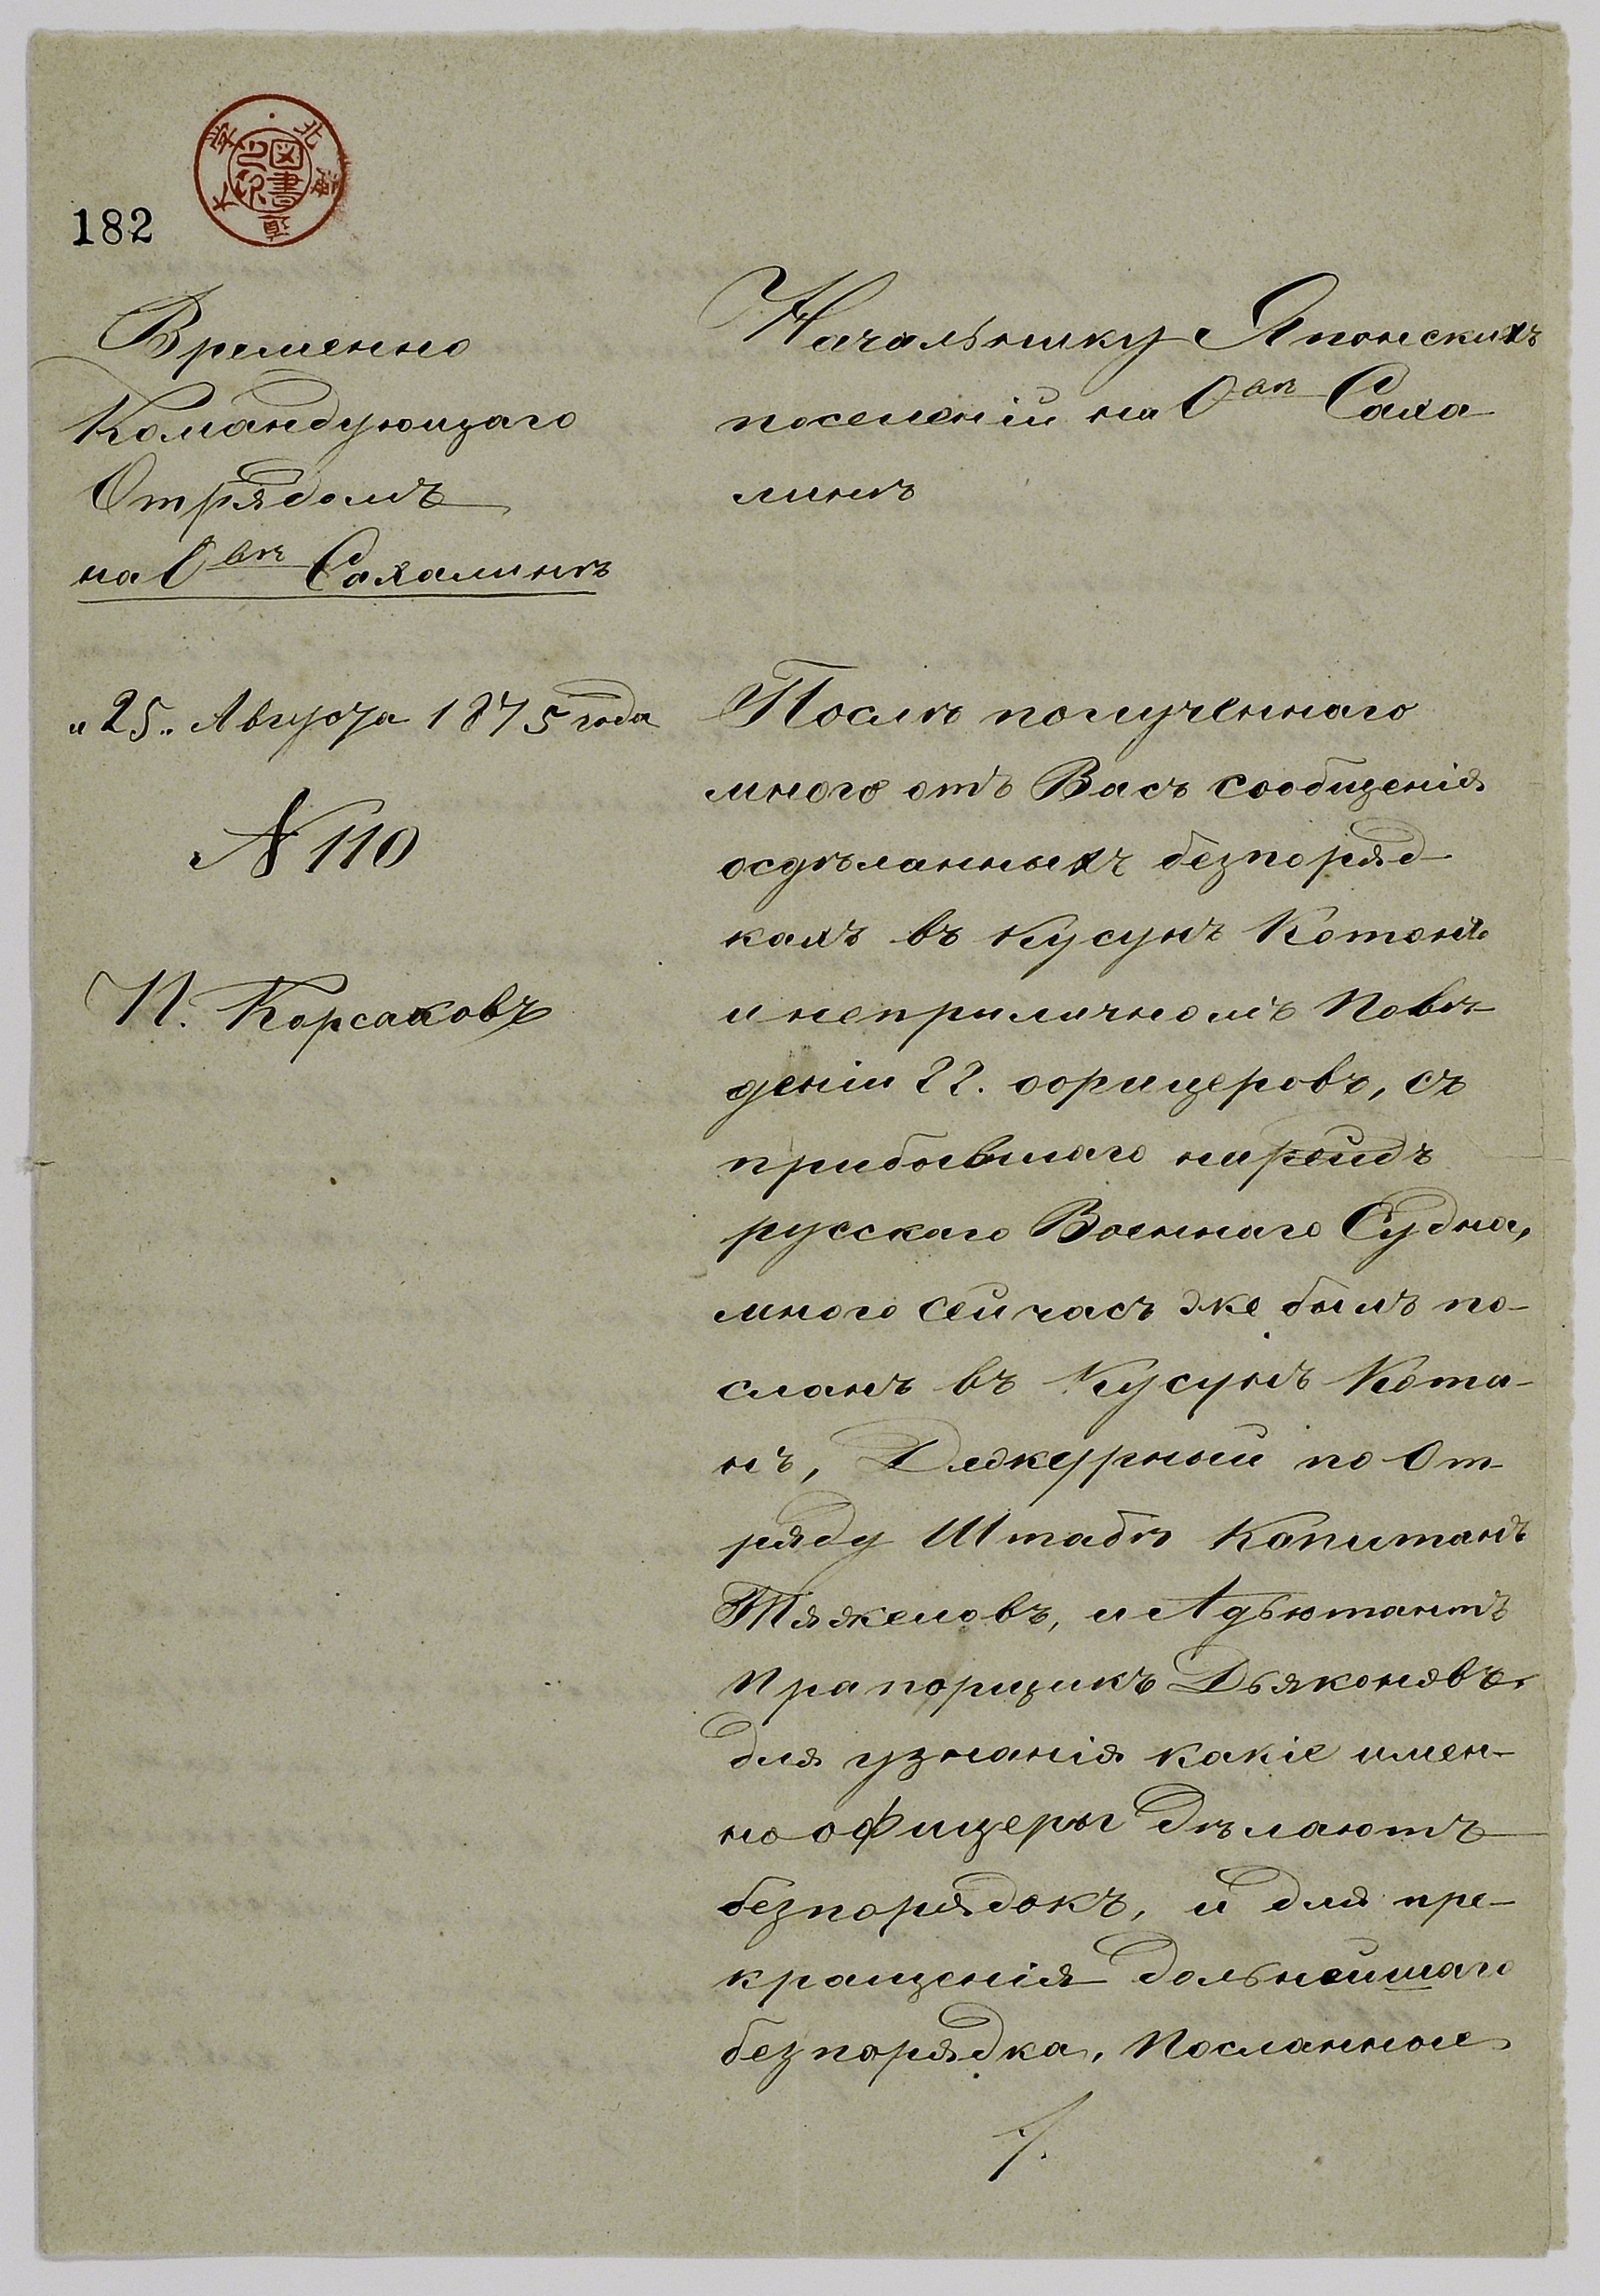 182
北海道帝國大學
図書之印
Временно
Командующаго
Отрядомъ
на О вѣ Сахалинѣ
„25„ Августа 1875 года
N 110
П. Корсаковъ
Начальнику Японскихъ
поселенiй на О вѣ Саха
линѣ
Послѣ полученнаго
мною отъ Васъ сообщенiя
осдѣланныхъ безпоряд-
кахъ въ Кусунъ Котанѣ
и неприличномъ Повѣ-
денiи 22. офицеровъ, съ
прибывшаго на рейдъ
русскаго Военнаго Судна,
мною сейчасъ же былъ по-
сланъ въ Кусунъ Кота-
нъ, Дежурный по От-
ряду Штабсъ Капитанъ
Тяжеловъ, и Адъютантъ
Прапорщикъ Дьяконовъ,
для узнанiя какiе имен-
но офицеры дѣлаютъ
безпорядокъ, и для пре-
кращенiя дальнейшаго
безпорядка. Посланные